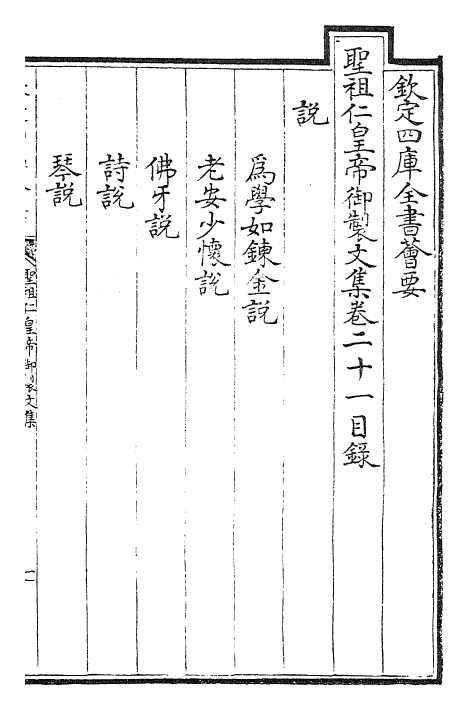 欽定四庫全書薈要
聖祖仁皇帝御製文集卷二十一目錄
說
為學如鍊金說
老安少懷說
佛牙說
詩說
琴說
聖祖仁皇帝御製文集